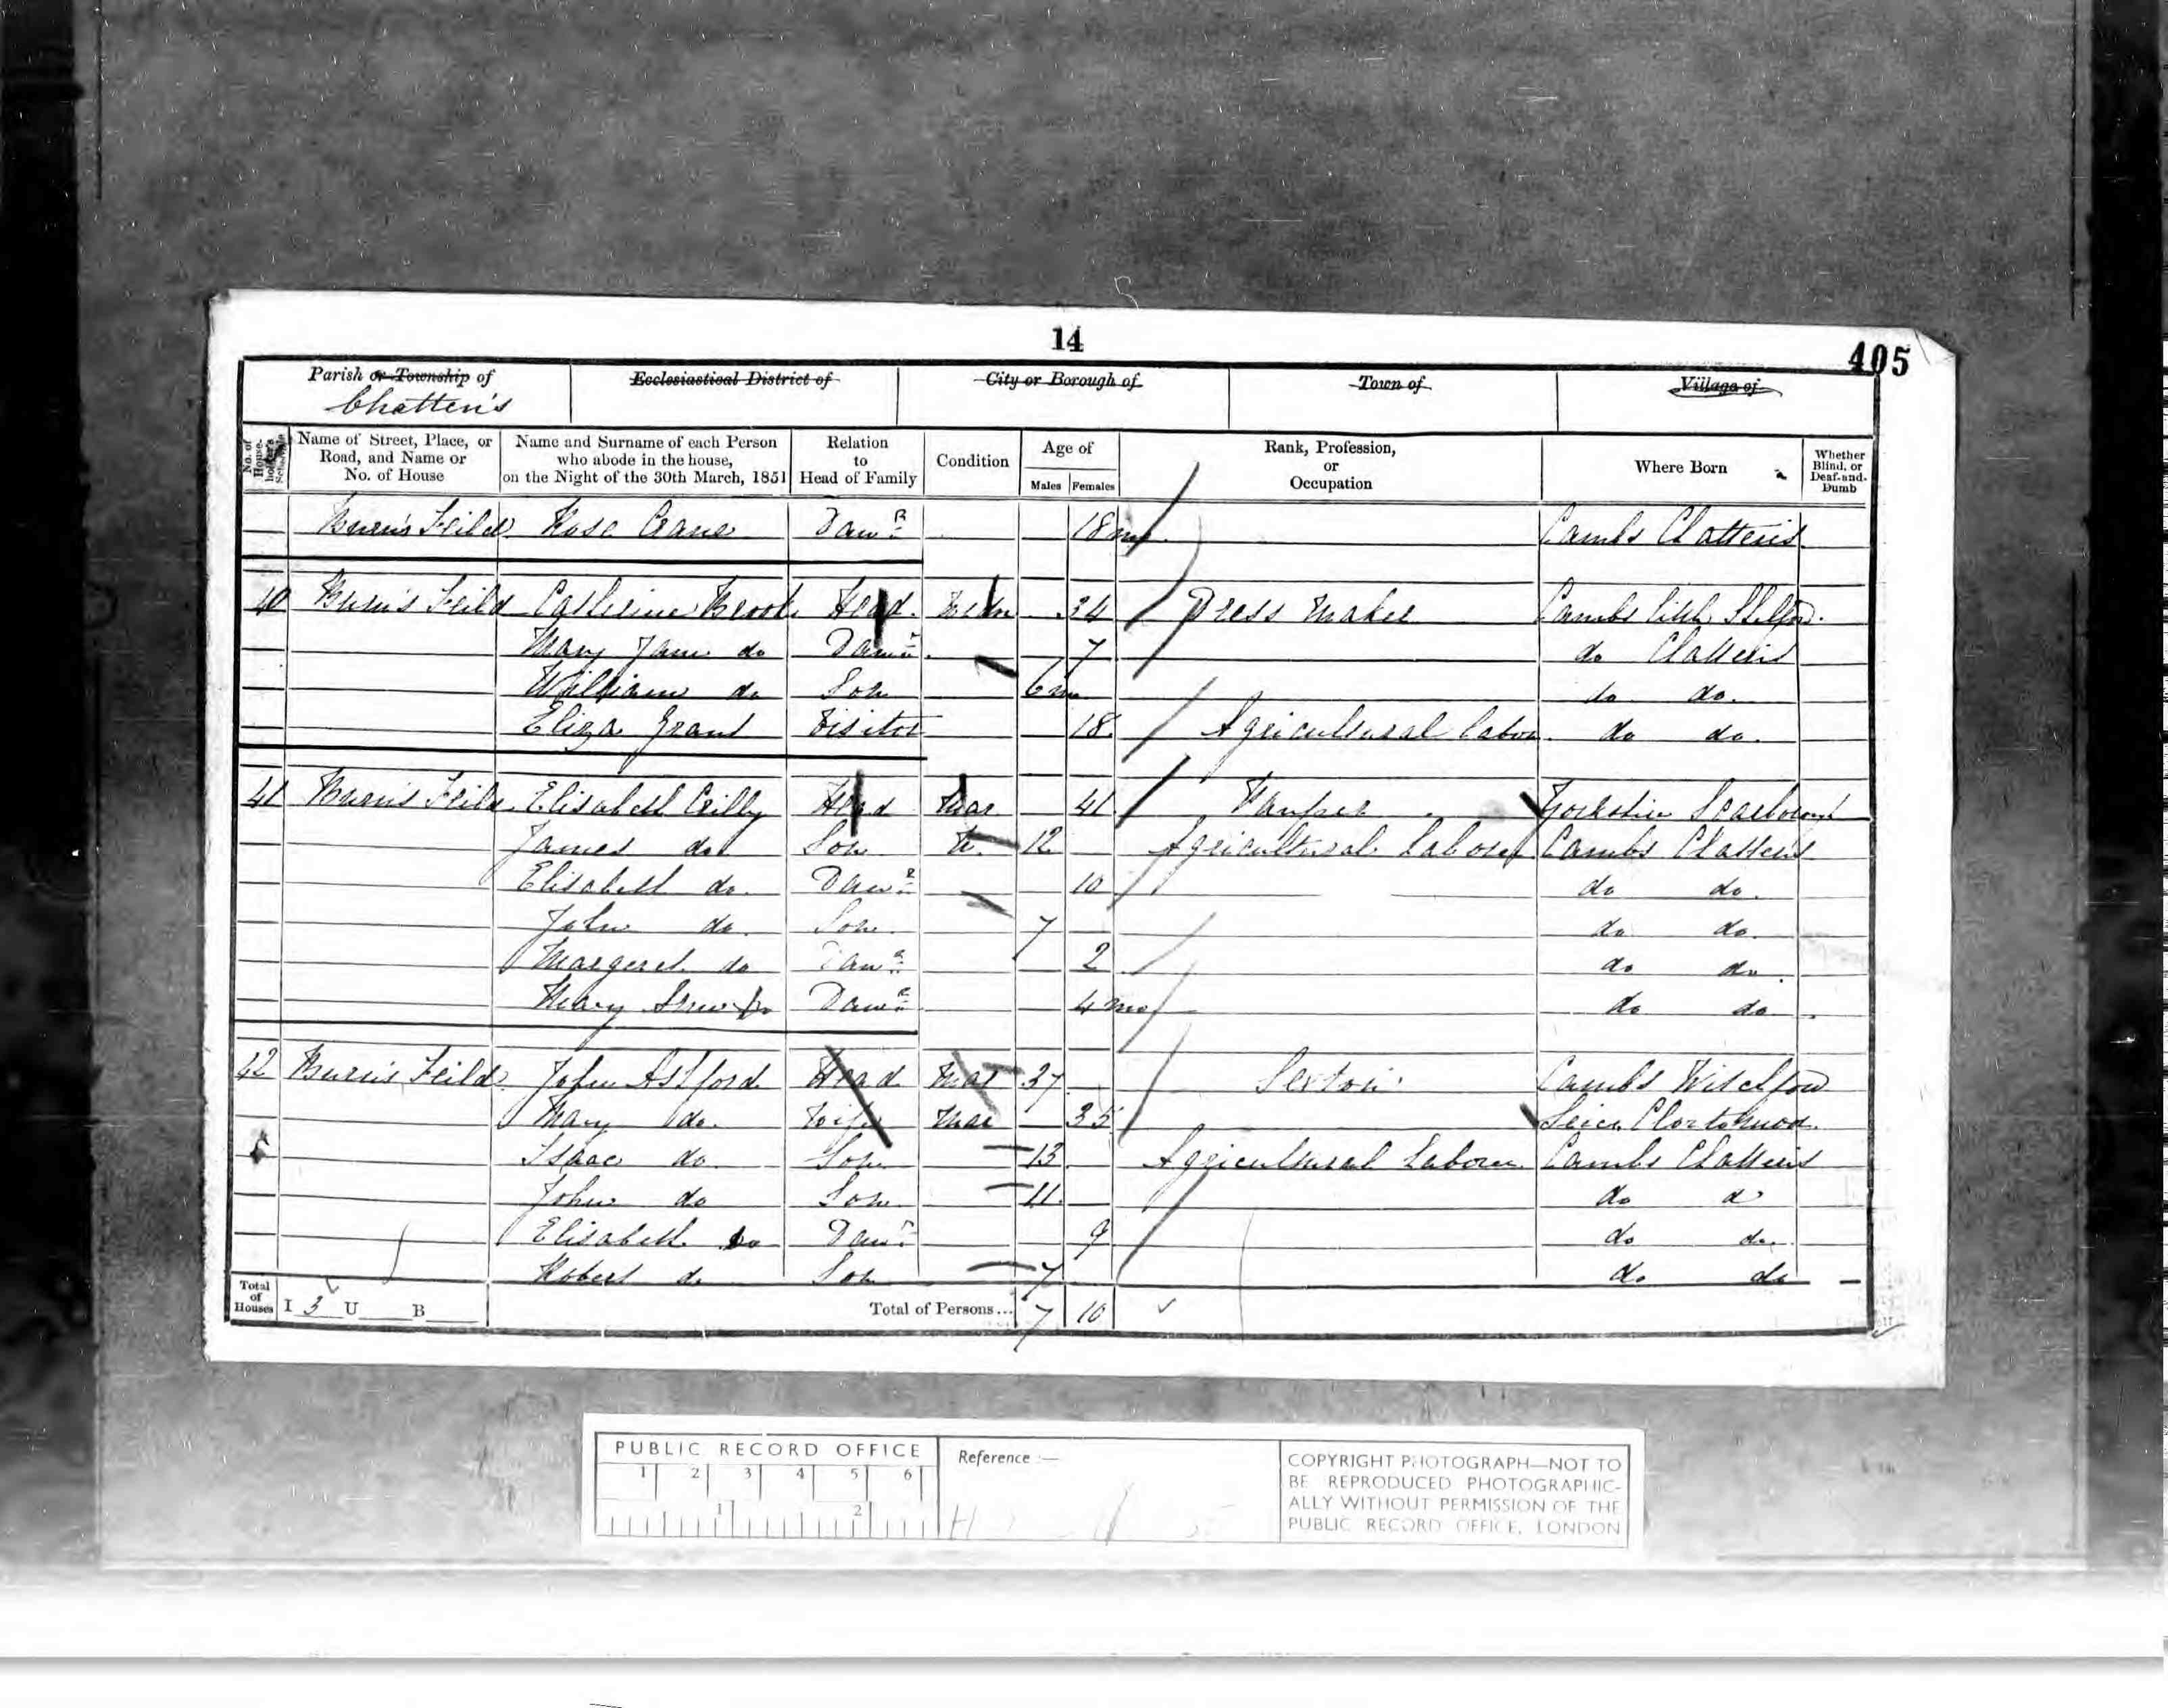 14
405
Parish or Township of Ecclesiastical District of City or Borough of Town of Village of
Chatteris
No. of Householder's Schedule Name of Street, Place, or Road, and Name or No. of House Name and Surname of each Person who abode in the house, on the Night of the 30th March, 1851 Relation to Head of Family Condition Age of Males Females Rank, Profession, or Occupation Where Born Whether Blind, or Deaf-and-Dumb
Burn's Feild Rose Crane Dawr 18 mo Cambs Chatteris
40 Burn's Feild Catherine Brook Head 34 Dress Maker Cambs Little Shelford
Mary Jane do Dawr 7 do Chatteris
William do Son 6 m do do
Eliza Grant Visitor 18 Agricultural Labor do do
41 Burn's Feild Elisabeth Crilly Head Mar 41 Pauper Yorkshire Scarborough
James do Son 12 Agricultural Laborer Cambs Chatteris
Elisabeth do Dawr 10 do do
John do Son 7 do do
Margaret do Dawr 2 do do
Mary Ann do Dawr 4 mo do do
42 Burn's Feild John Ashford Head Mar 37 Sexton Cambs Witchford
Mary do Wife Mar 35 Leics
Isaac do Son 13 Agricultural Laborer Cambs Chatteris
John do Son 11 do do
Elisabeth do Dawr 9 do do
Robert do Son 7 do do
Total of Houses I 3 U B Total of Persons... 7 10
PUBLIC RECORD OFFICE
1 2 3 4 5 6
1 2
Reference :—
COPYRIGHT PHOTOGRAPH—NOT TO
BE REPRODUCED PHOTOGRAPHIC-
ALLY WITHOUT PERMISSION OF THE
PUBLIC RECORD OFFICE, LONDON